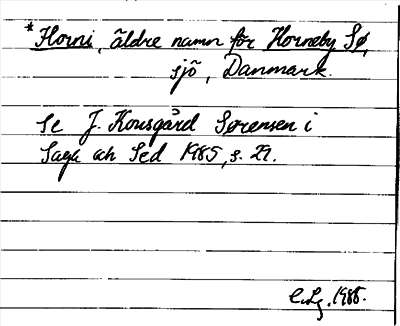 *Horni, äldre namn för Horneby Sø,
sjö, Danmark.
Se J. Kousgård Sørensen i
Saga och Sed 1985, s. 29.
C.Lg. 1988.